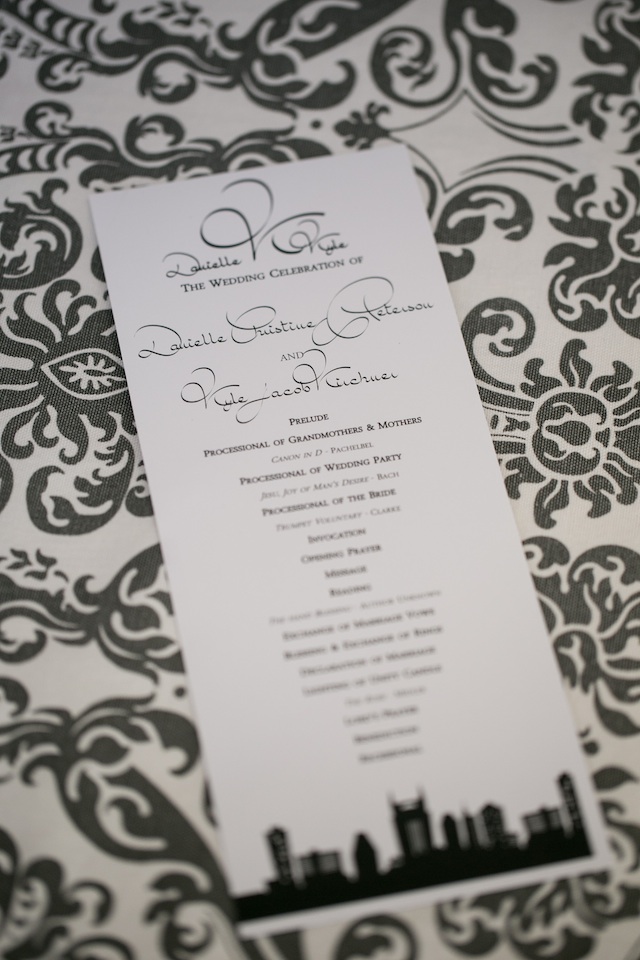 Danielle K Kyle
The Wedding Celebration of
Danielle Christine Peterson
and
Kyle Jacob Kirchner
Prelude
Processional of Grandmothers & Mothers
Canon in D - Pachelbel
Processional of Wedding Party
Jesu, Joy of Man's Desire - Bach
Processional of the Bride
Trumpet Voluntary - Clarke
Invocation
Opening Prayer
Message
Reading
Author Unknown
Exchange of Marriage Vows
Blessing & Exchange of Rings
Declaration of Marriage
Lighting of Unity Candle
Lord's Prayer
Benediction
Recessional